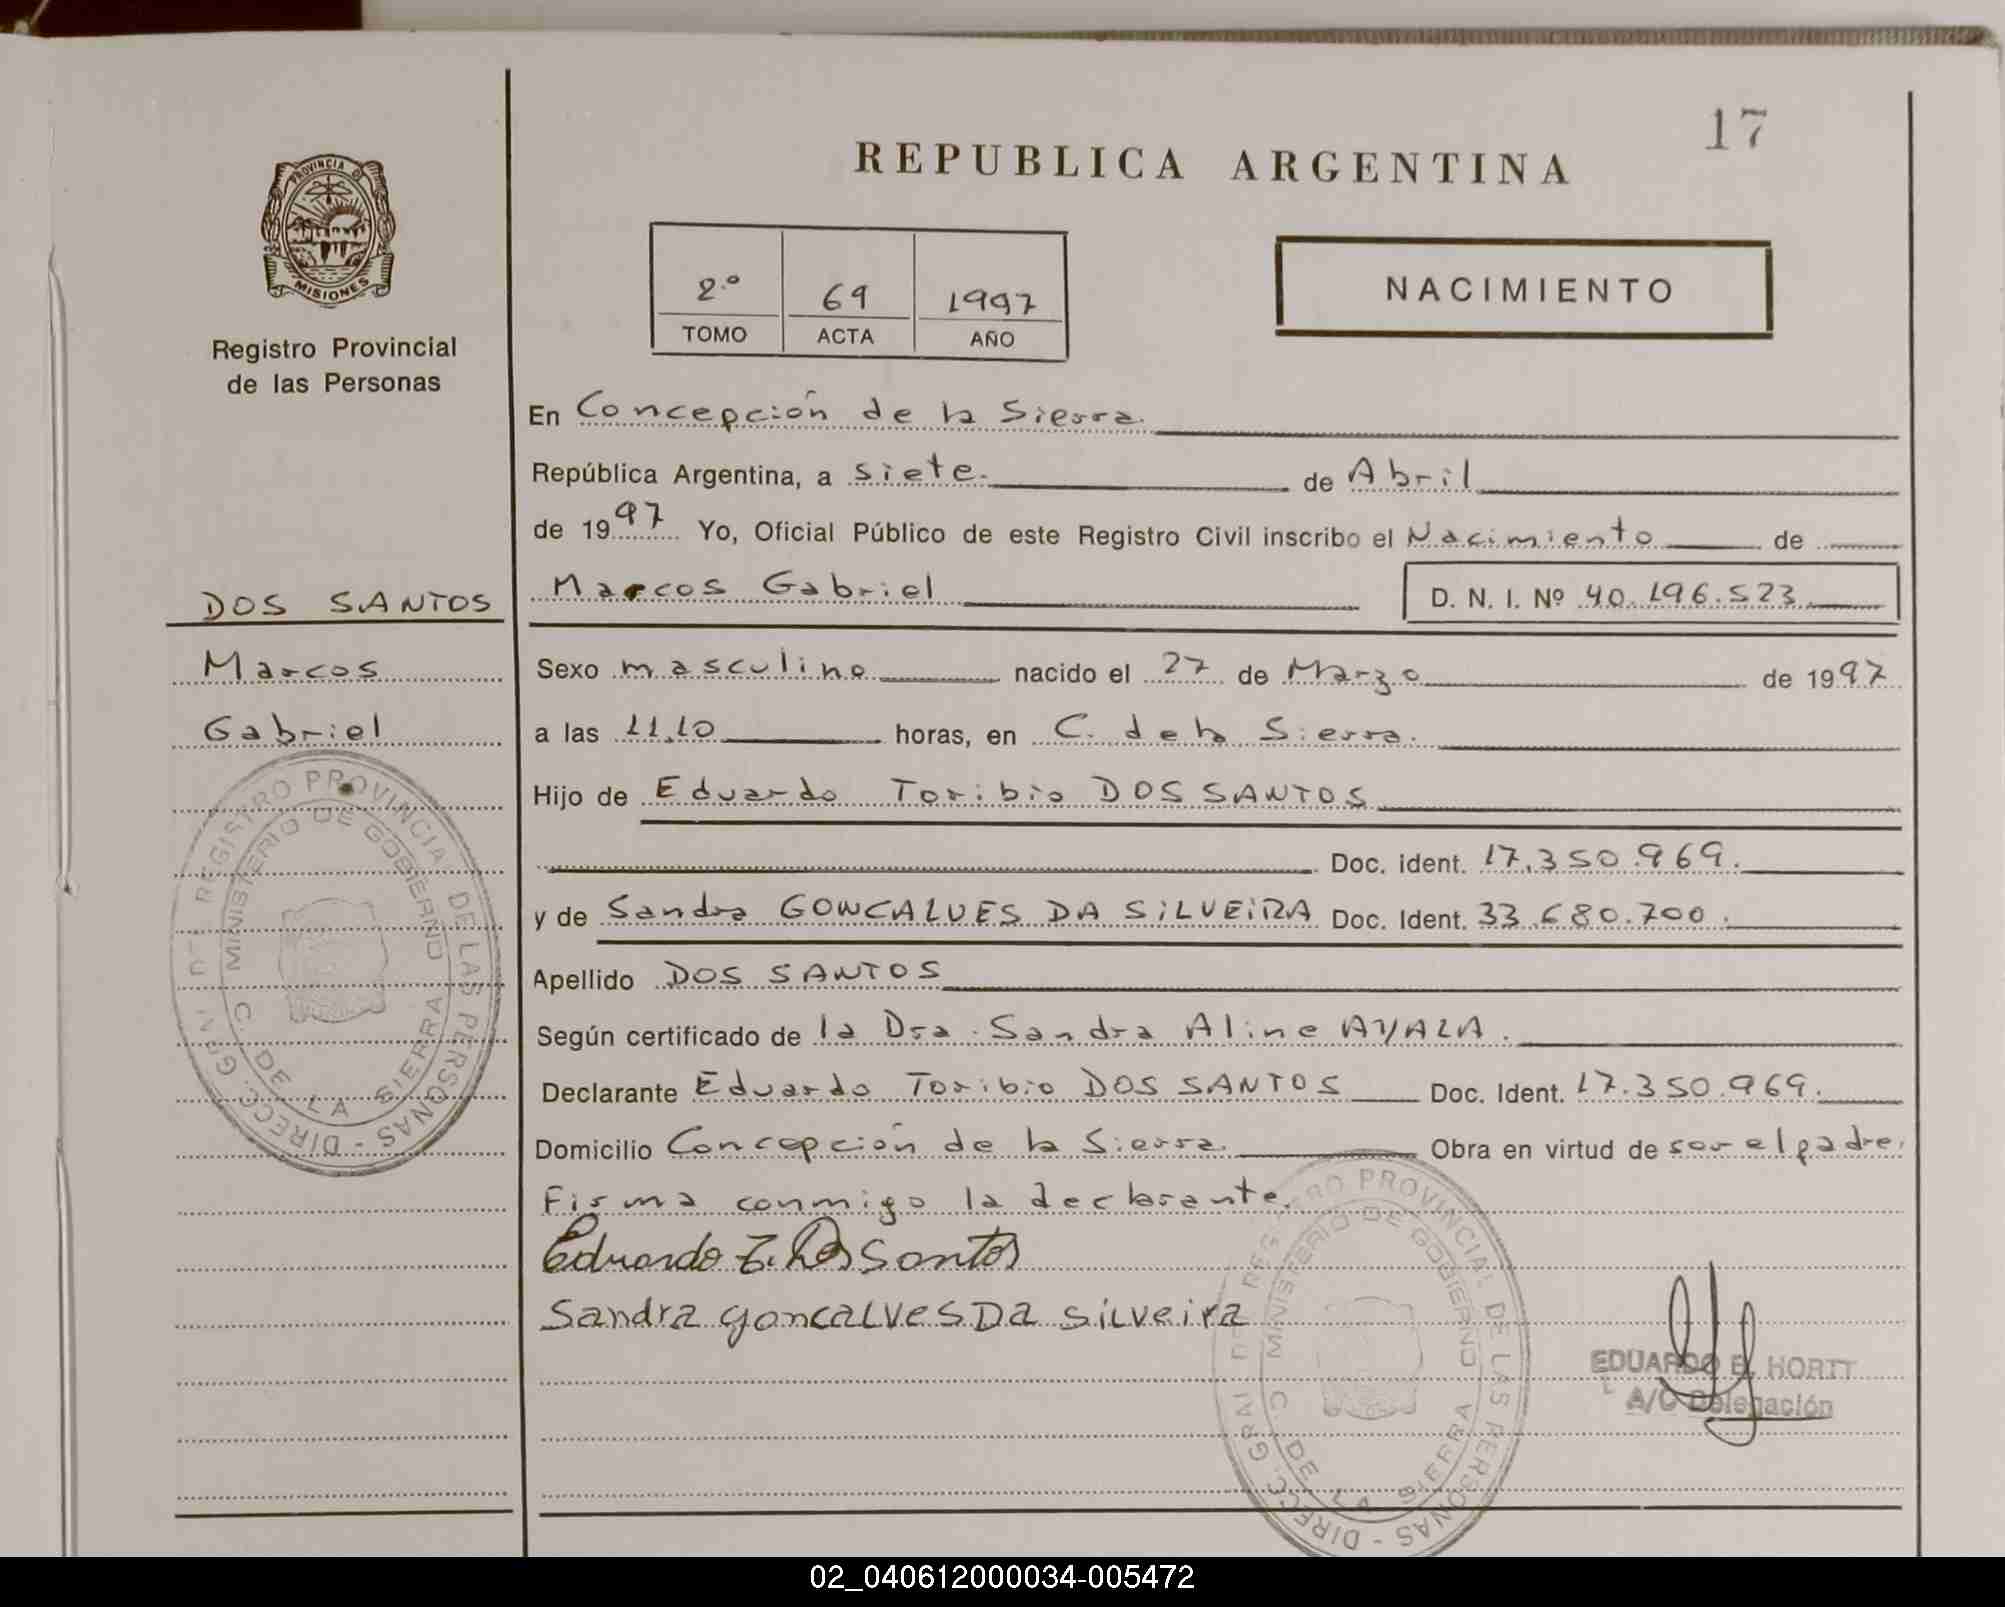 17
REPUBLICA ARGENTINA
PROVINCIA DE
MISIONES
Registro Provincial
de las Personas
2º 69 1997
TOMO ACTA AÑO
NACIMIENTO
En Concepción de la Sierra.
República Argentina, a siete. de Abril
de 1997 Yo, Oficial Público de este Registro Civil inscribo el Nacimiento de
DOS SANTOS
Marcos
Gabriel
Marcos Gabriel D. N. I. Nº 40.196.523
Sexo masculino nacido el 27 de Marzo de 1997
a las 11,10 horas, en C. de la Sierra.
Hijo de Eduardo Toribio DOS SANTOS
Doc. ident. 17.350.969.
y de Sandra GONCALVES DA SiLVEiRA Doc. Ident. 33.680.700.
Apellido DOS SANTOS
Según certificado de la Dra. Sandra Aline AYALA.
Declarante Eduardo Toribio DOS SANTOS Doc. Ident. 17.350.969.
Domicilio Concepción de la Sierra. Obra en virtud de ser el padre.
Firma conmigo la declarante.
Eduardo T. Dos Santos
Sandra goncalves Da silveira
DIRECC. GRAL DEL REGISTRO PROVINCIAL DE LAS PERSONAS
MINISTERIO DE GOBIERNO
C. DE LA SIERRA
DIRECC. GRAL DEL REGISTRO PROVINCIAL DE LAS PERSONAS
MINISTERIO DE GOBIERNO
C. DE LA SIERRA
EDUARDO E. HORTT
A/C Delegación
02_040612000034-005472